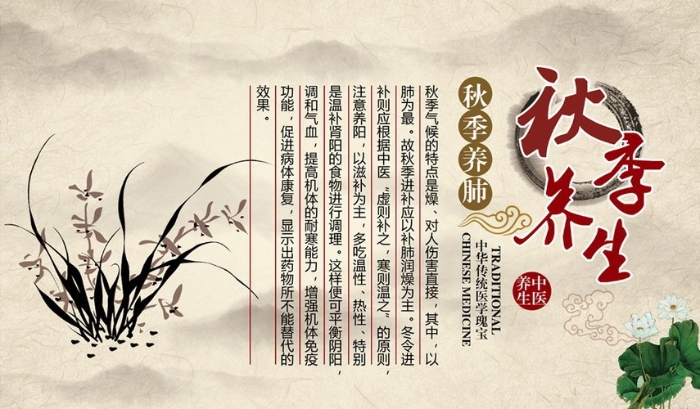 秋季养生
中医
养生
秋季养肺
TRADITIONAL
CHINESE MEDICINE
中华传统医学瑰宝
秋季气候的特点是燥、对人伤害直接，其中，以
肺为最。故秋季进补应以补肺润燥为主。冬令进
补则应根据中医“虚则补之，寒则温之”的原则，
注意养阳，以滋补为主，多吃温性、热性、特别
是温补肾阳的食物进行调理。这样便可平衡阴阳，
调和气血，提高机体的耐寒能力，增强机体免疫
功能，促进病体康复，显示出药物所不能替代的
效果。